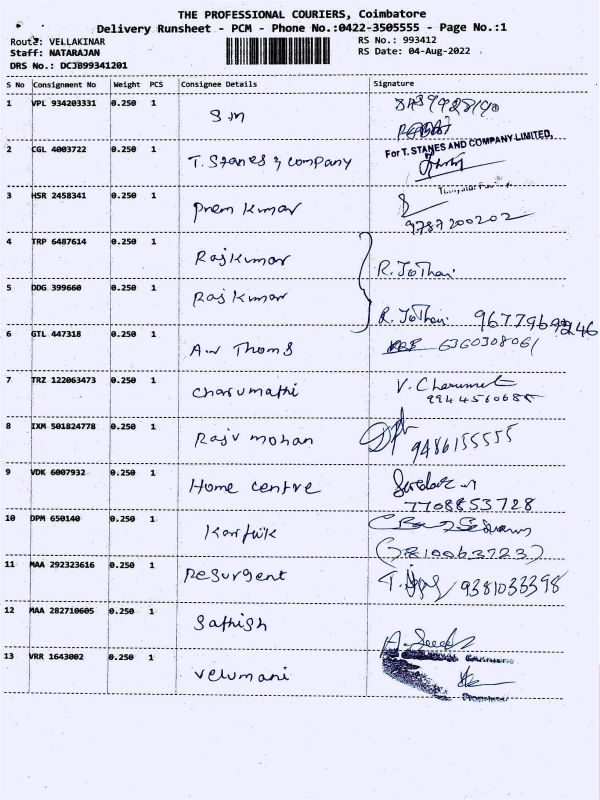 THE PROFESSIONAL COURIERS, Coimbatore
Delivery Runsheet - PCM - Phone No.:0422-3505555 - Page No.:1
Route: VELLAKINAR RS No.: 993412
Staff: NATARAJAN RS Date: 04-Aug-2022
DRS No.: DCJB99341201
S No Consignment No Weight PCS Consignee Details Signature
1 VPL 934203331 0.250 1 S M
2 CGL 4003722 0.250 1 T. Stanes & Company For T. STANES AND COMPANY LIMITED,
3 HSR 2458341 0.250 1 Prem Kumar
9787200202
4 TRP 6487614 0.250 1 Rajkumar R. Jothi
5 DDG 399660 0.250 1 Raj Kumar R. Jothi
6 GTL 447318 0.250 1 6360308061
7 TRZ 122063473 0.250 1 Charumathi V. Charumati
9944560685
8 IXM 501824778 0.250 1 Rajv mohan 9486155555
9 VDK 6007932 0.250 1 Home centre
7708853728
10 DPM 650140 0.250 1 Karfik
(7810063723)
11 MAA 292323616 0.250 1 Resurgent 9381033398
12 MAA 282710605 0.250 1 Sathish
13 VRR 1643002 0.250 1 Velumani